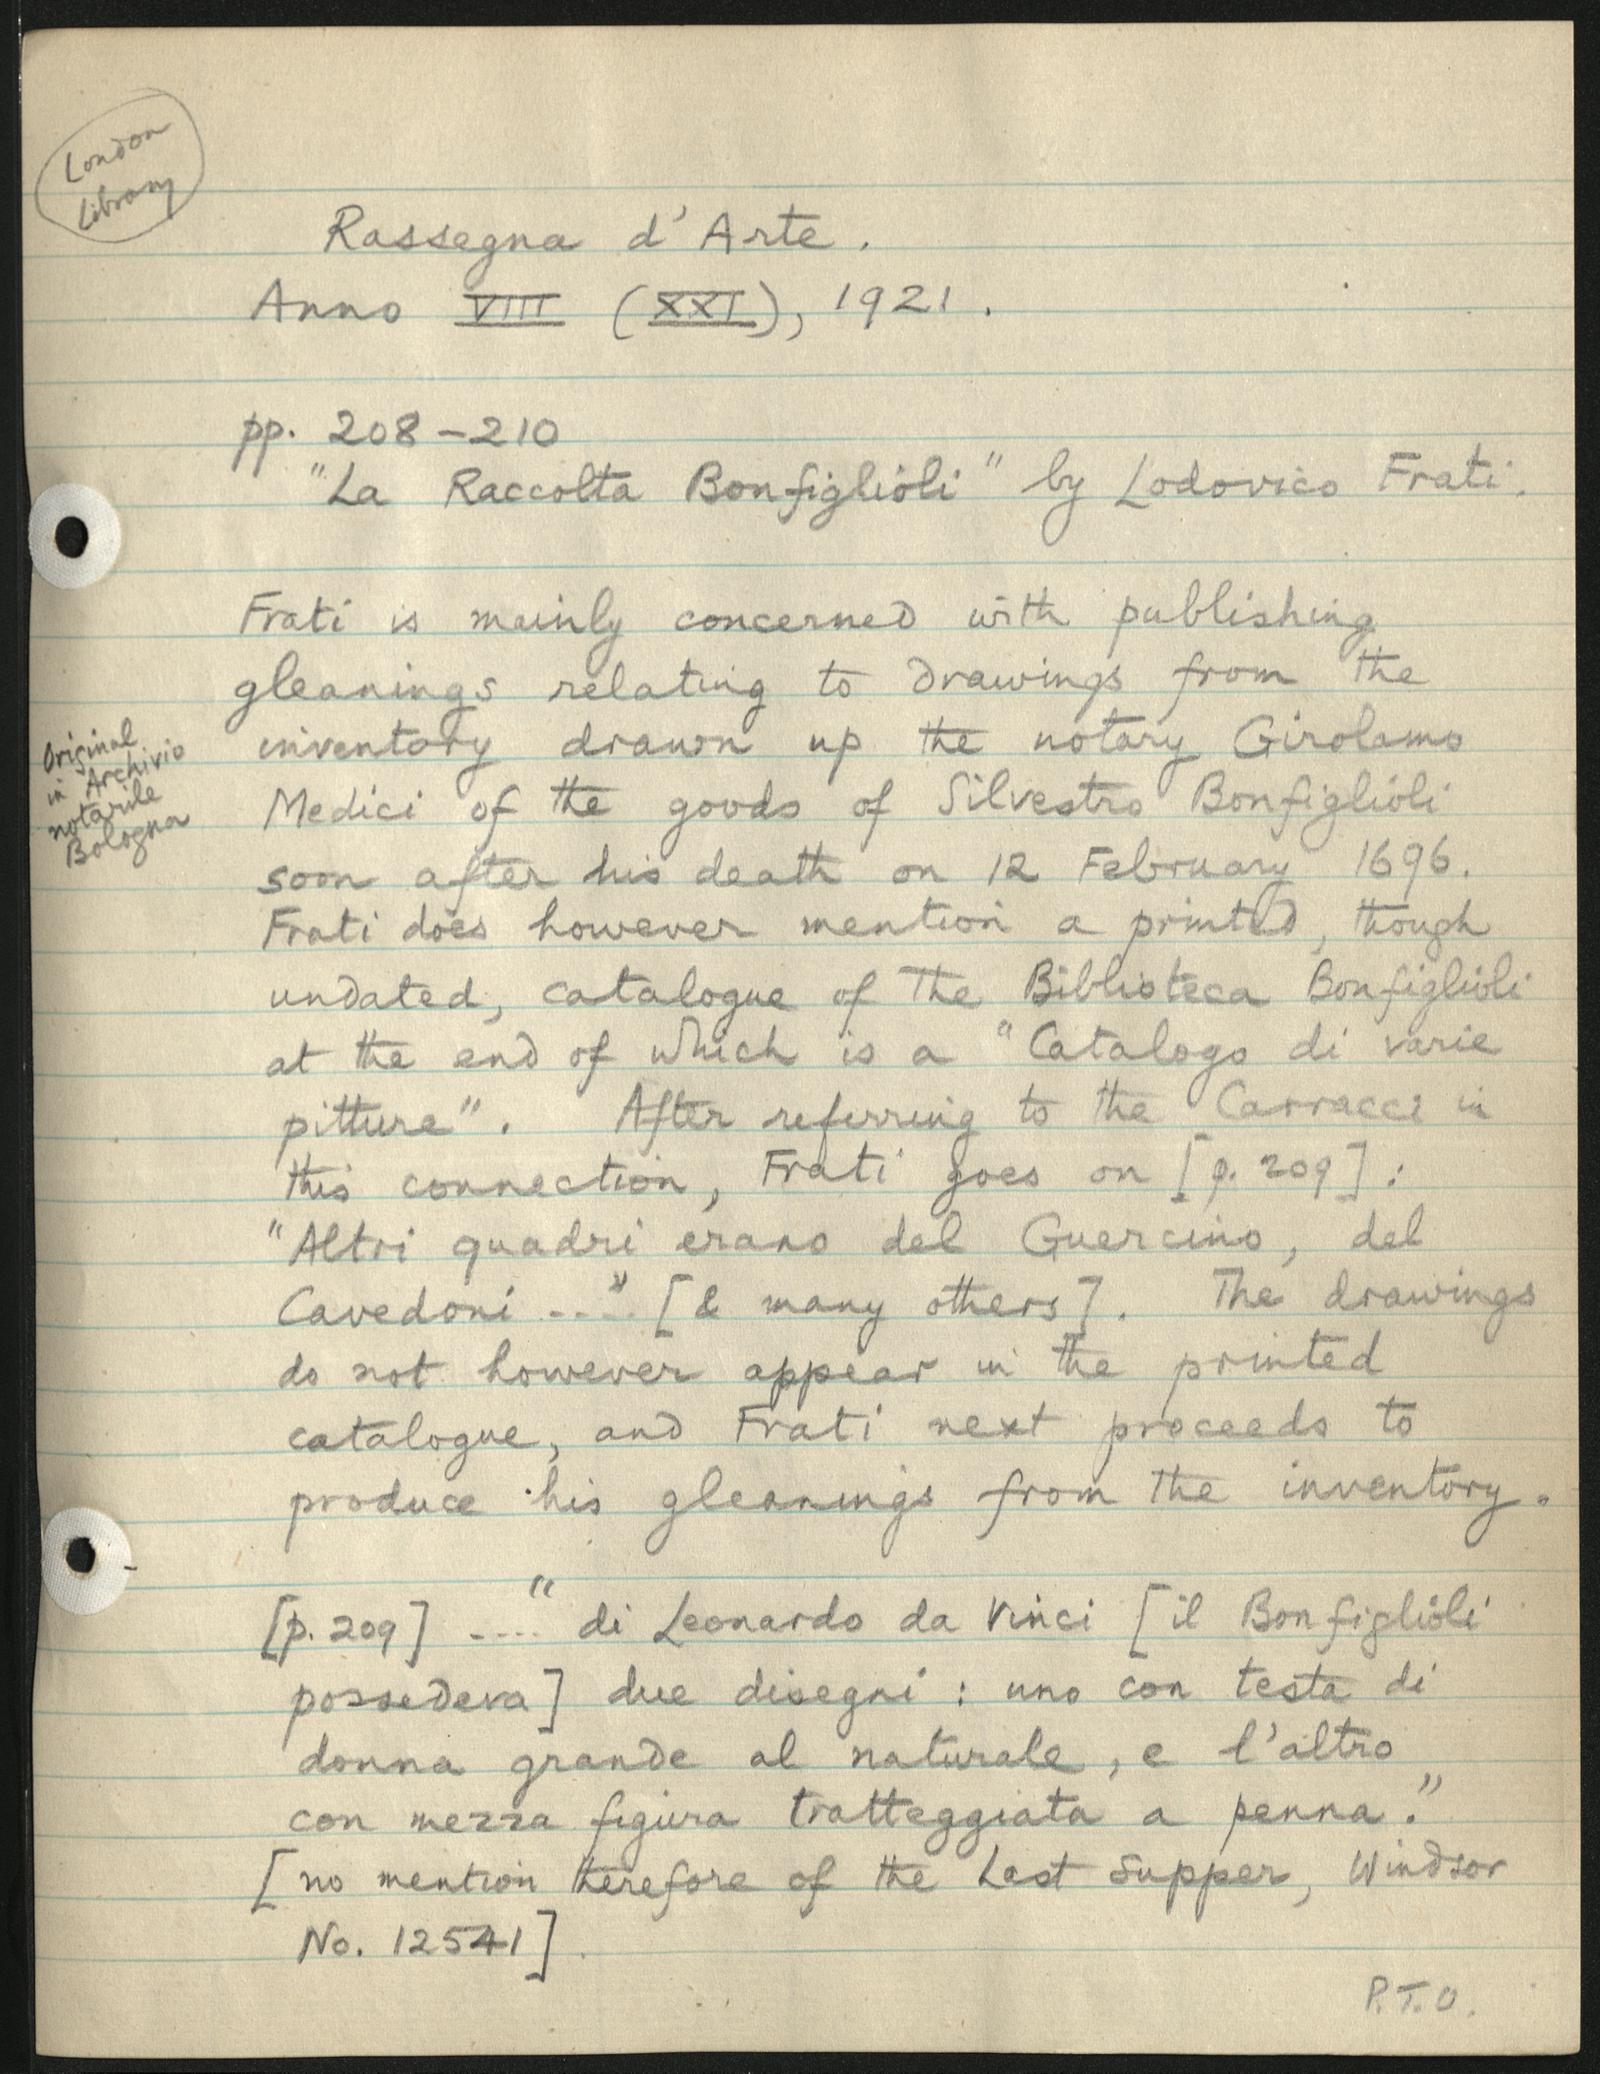 London
Library
Rassegna d'Arte.
Anno VIII (XXI), 1921.
pp. 208-210
"La Raccolta Bonfiglioli" by Lodovico Frati.
Frati is mainly concerned with publishing
gleanings relating to drawings from the
inventory drawn up the notary Girolamo
Medici of the goods of Silvestro Bonfiglioli
soon after his death on 12 February 1696.
Original
in Archivio
notarile
Bologna
Frati does however mention a printed, though
undated, catalogue of the Biblioteca Bonfiglioli
at the end of which is a "Catalogo di varie
pitture". After referring to the Carracci in
this connection, Frati goes on [p. 209]:
"Altri quadri erano del Guercino, del
Cavedoni ...." [& many others]. The drawings
do not however appear in the printed
catalogue, and Frati next proceeds to
produce his gleanings from the inventory.
[p. 209] .... "di Leonardo da Vinci [il Bonfiglioli
possedeva] due disegni: uno con testa di
donna grande al naturale, e l'altro
con mezza figura tratteggiata a penna."
[no mention therefore of the Last Supper, Windsor
No. 12541].
P.T.O.